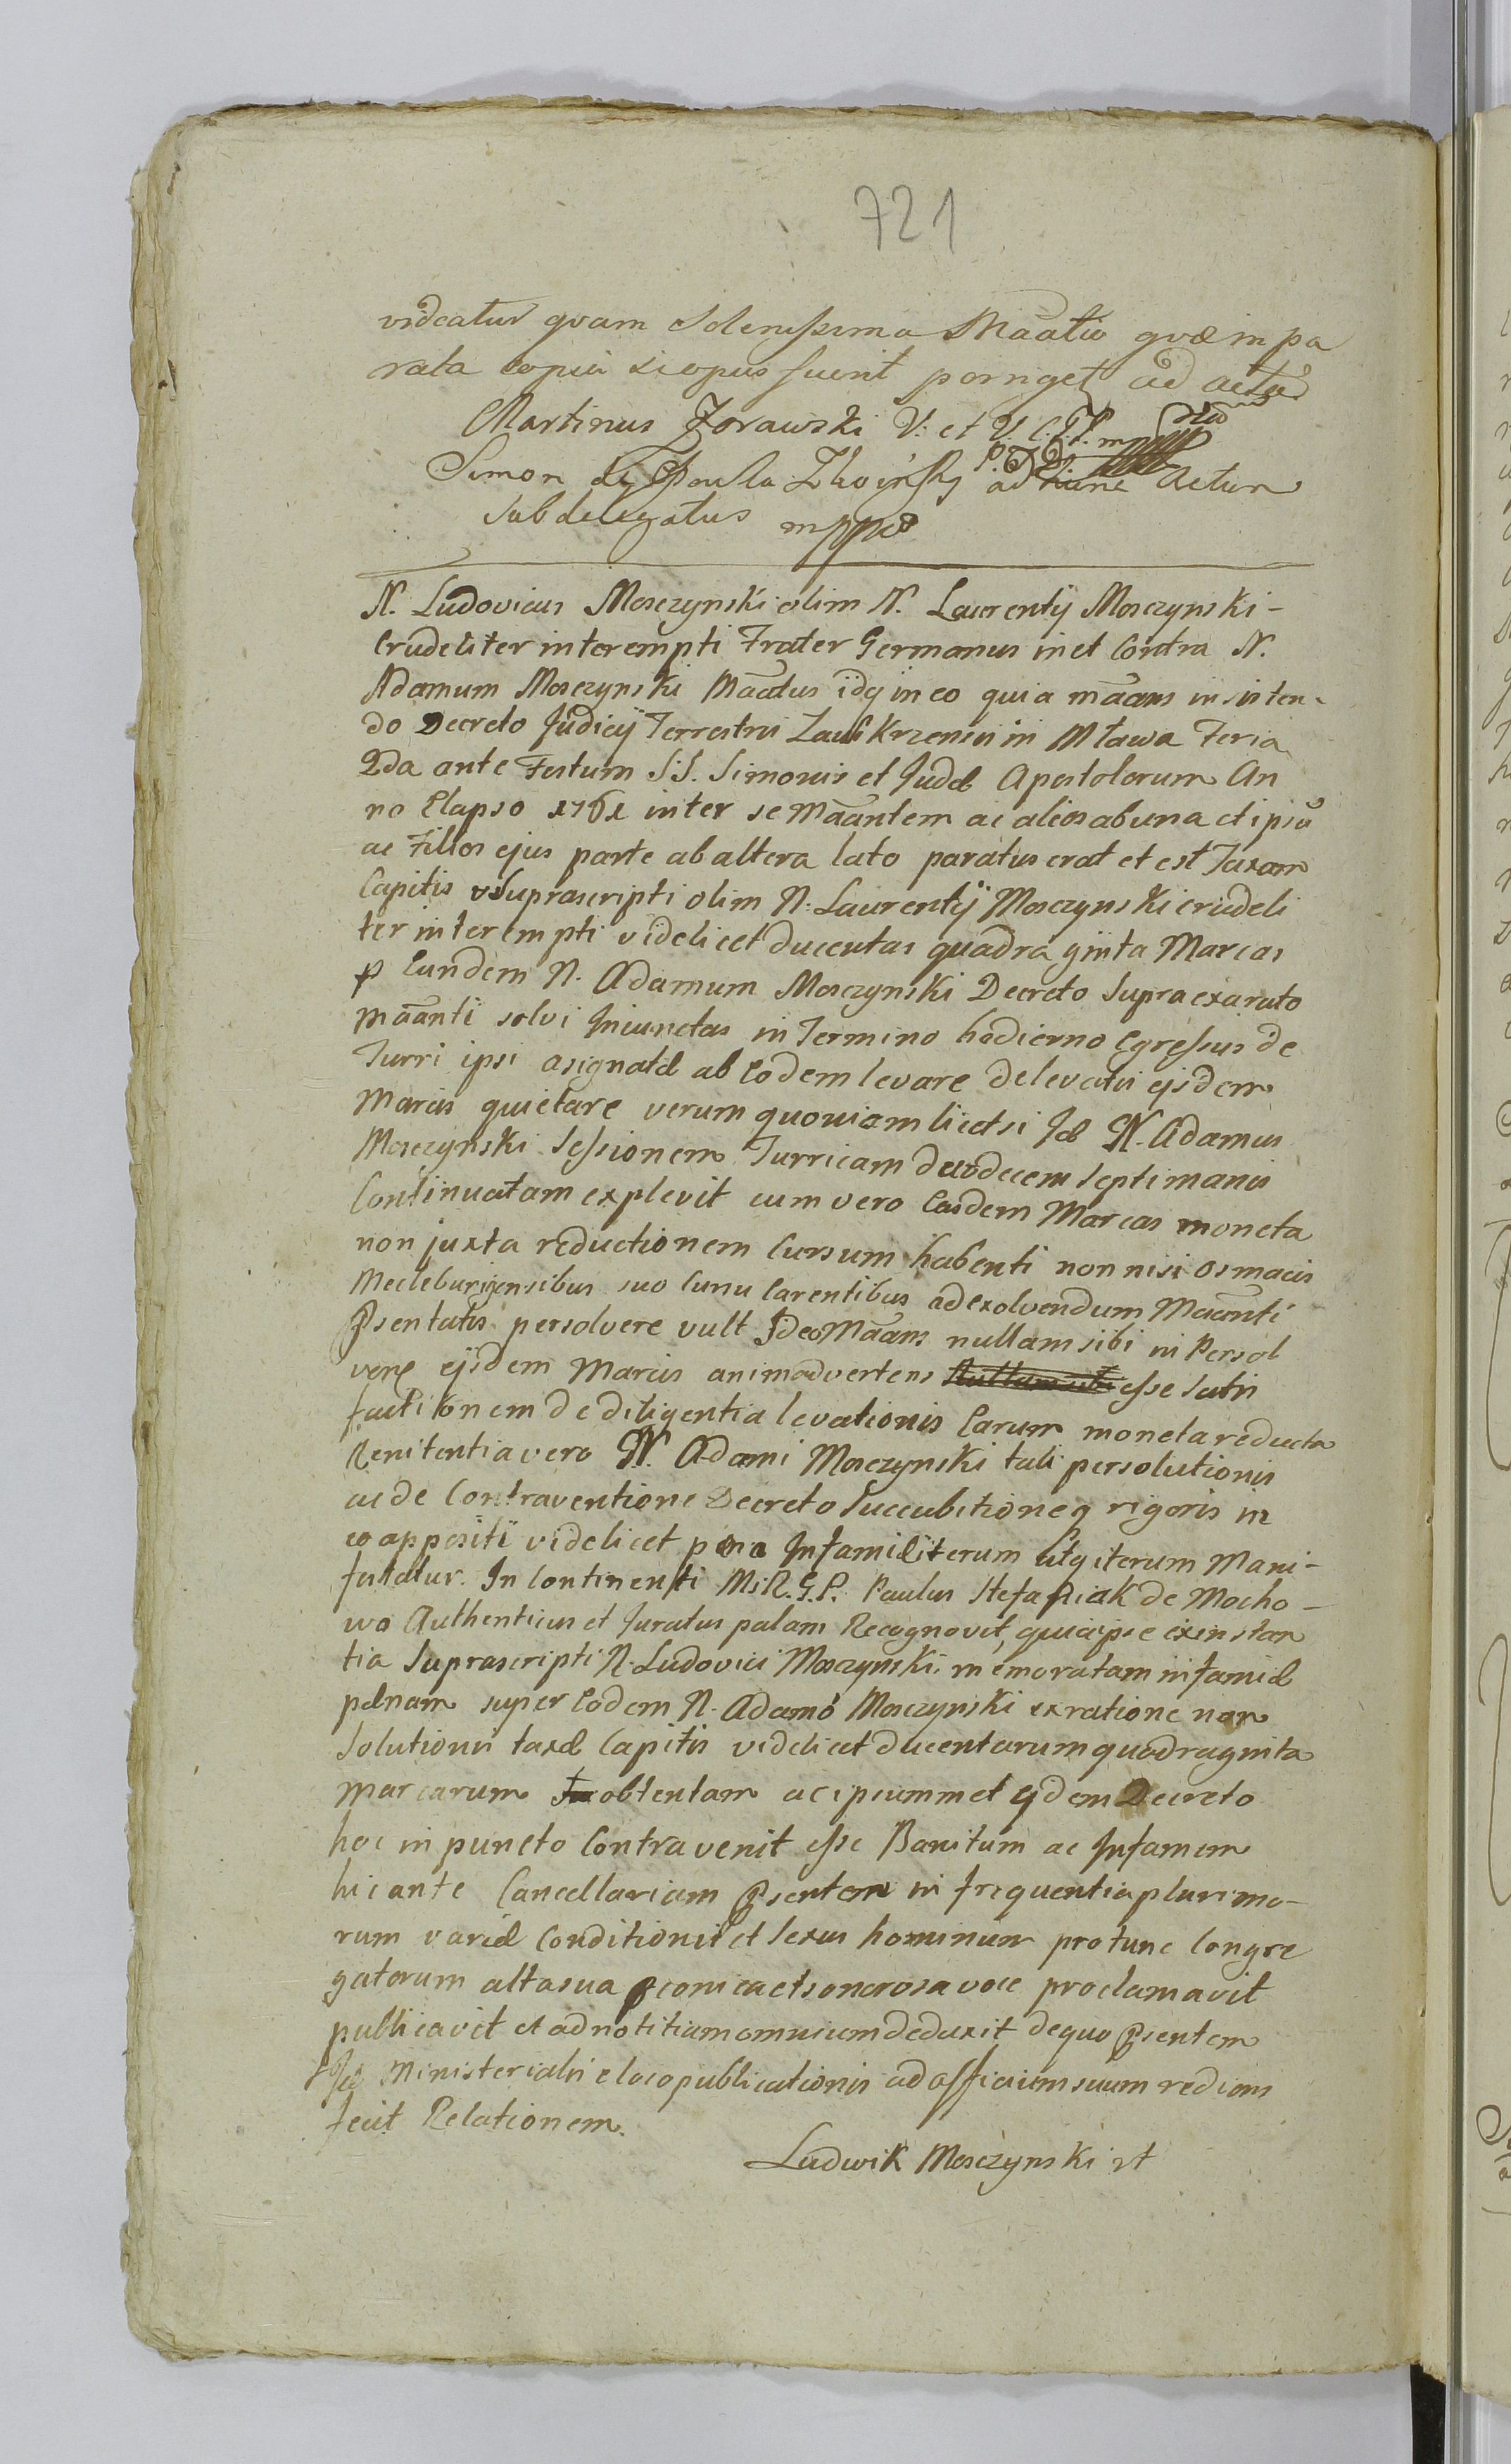 721
videatur quam solenissima Maatio quæ in pa
rata copia si opus fuerit porriget ad acta
Martinus Zorawski V: et V. C. mpp
Simon de ad hunc Actum
Subdelegatus mppa
N. Ludovicus Mosczynski olim N. Laurentij Mosczynski -
Crudeliter interempti Frater Germanus in et Contra N.
Adamum Mosczynski Maatus idq in eo quia maans insisten-
do Decreto Judicij Terrestris Zauskrzensis in Mława Feria
2da ante Festum S:S. Simonis et Judæ Apostolorum An
no Elapso 1761 inter se Maantem ac alios ab una et ipsū
ac Filios ejus parte ab altera lato paratus erat et est Taxam
Capitis Suprascripti olim N: Laurentij Mosczynski crudeli
ter interempti videlicet ducentas quadraginta Marcas
p Eundem N. Adamum Mosczynski Decreto Supra exarato
maanti solvi Injunctas in Termino hodierno Egressus de
Turri ipsi asignatæ ab Eodem levare de levatis ejsdem
Marcis quietare verum quoniam licet si Jd N. Adamus
Mosczynski Sessionem Turricam duodecem septimanis
Continuatam explevit cum vero Easdem Marcas moneta
non juxta reductionem Cursum habenti non nisi osmacis
Mecleburgensibus suo Cunu Carentibus ad exolvendum Maanti
Psentatis persolvere vult Ideo Maans nullam sibi in Persol
vene ejsdem Marcis animadvertens esse Satis
factionem de diligentia levationis Earum moneta reducta
Renitentia vero N. Adami Mosczynski tali persolutionis
ac de Contraventione Decreto Succubitioneq rigoris in
eo appositi videlicet pæna Infamiæ iterum atq iterum Mani-
festatur. In Continenti M: R. G. P. Paulus Stefaniak de Mocho -
wo Authenticus et Juratus palam Recognovit, quia ipse ex instan
tia Suprascripti N. Ludovici Mosczynski memoratam infamiæ
pænam super Eodem N. Adamo Mosczynski ex ratione non
Solutionis taxæ Capitis videlicet ducentarum quadraginta
Marcarum obtentam ac ipsummet qd em Decreto
hoc in puncto Contravenit esse Banitum ac Infamem
hic ante Cancellariam Psentem in frequentia plurimo-
rum variæ Conditionis et Sexus hominum pro tunc Congre
gatorum alta sua pconica et sonorosa voce proclamavit
publicavit et ad notitiam omnium deduxit de quo Psentem
Jd Ministerialis e loco publicationis ad officium suum rediens
fecit Relationem.
Ludwik Mosczynski